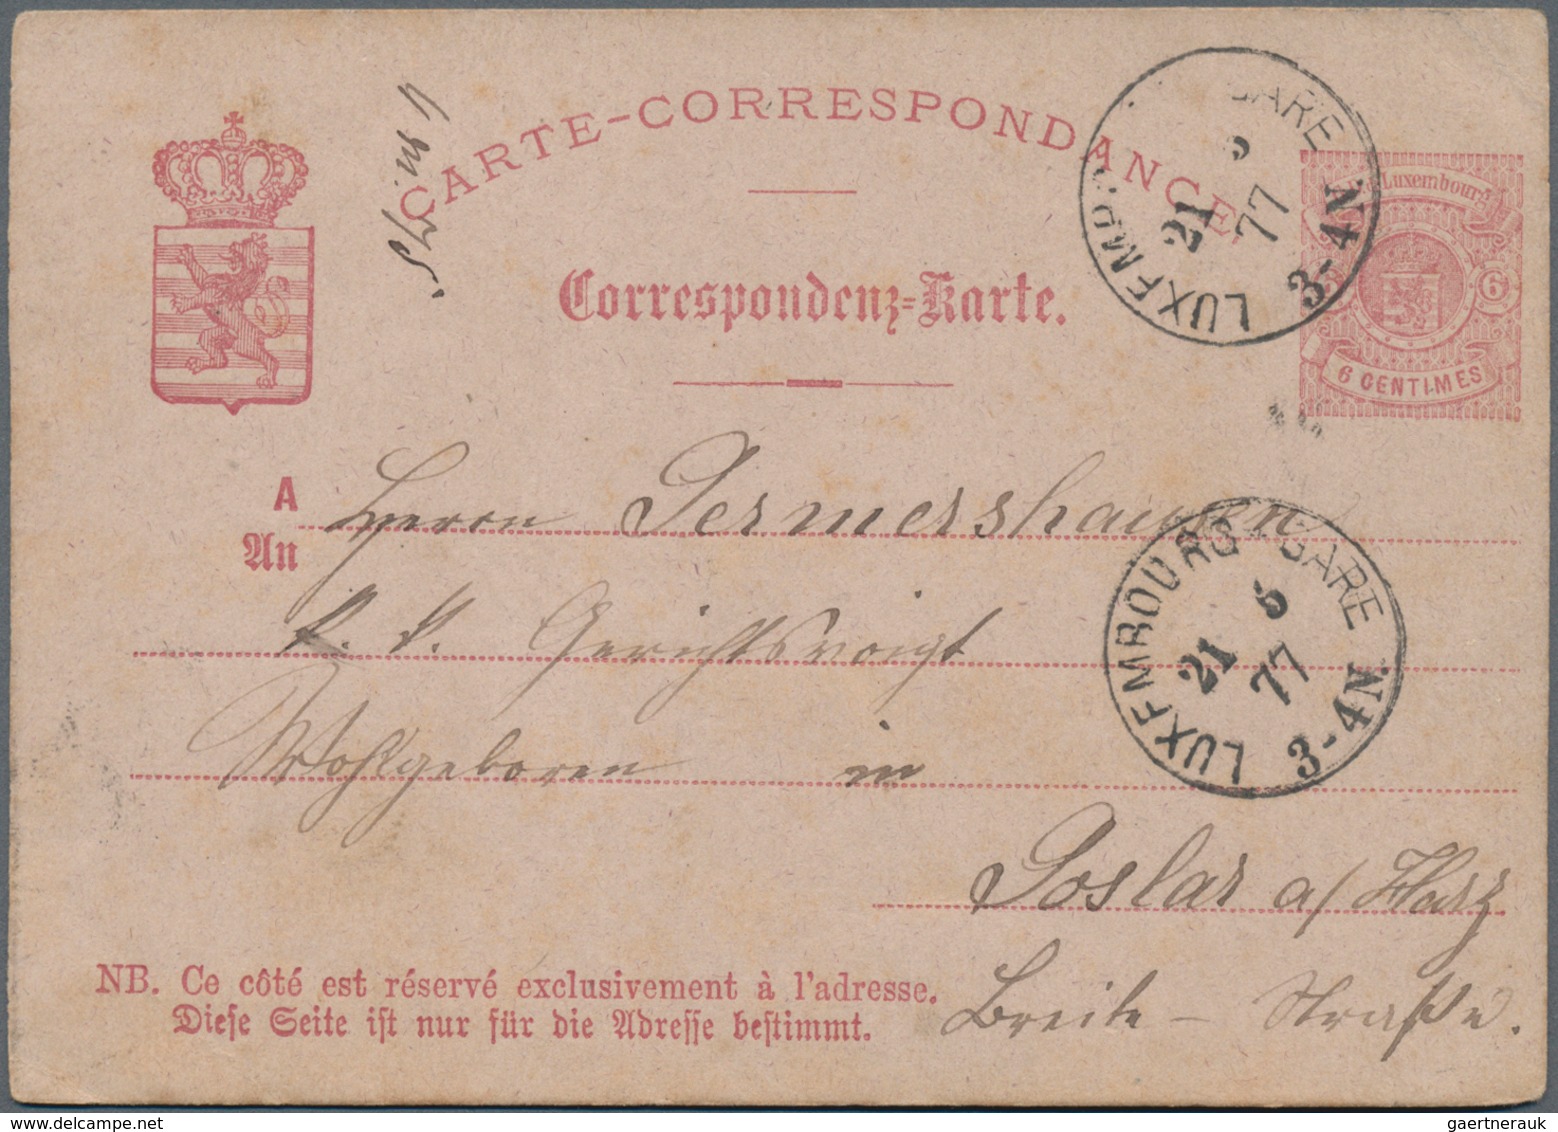 CARTE-CORRESPONDANCE,
Correspondenz-Karte.
Luxembourg
6
6 CENTIMES
LUXEMB GARE
21 5 77
3-4N.
A Herrn Germershausen
An
Gerichtsvoigt
Wohlgeboren in
Goslar a/Harz
Breite - Straße.
LUXEMBOURG GARE
21 5 77
3-4N.
NB. Ce côté est réservé exclusivement à l'adresse.
Diese Seite ist nur für die Adresse bestimmt.
gaertnerauk